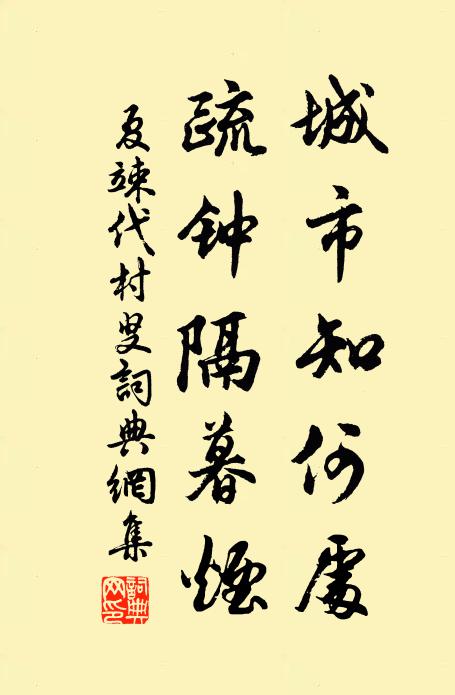 城市知何處
疏钟隔暮煙
夏竦代村叟詞典網集
詞典網印